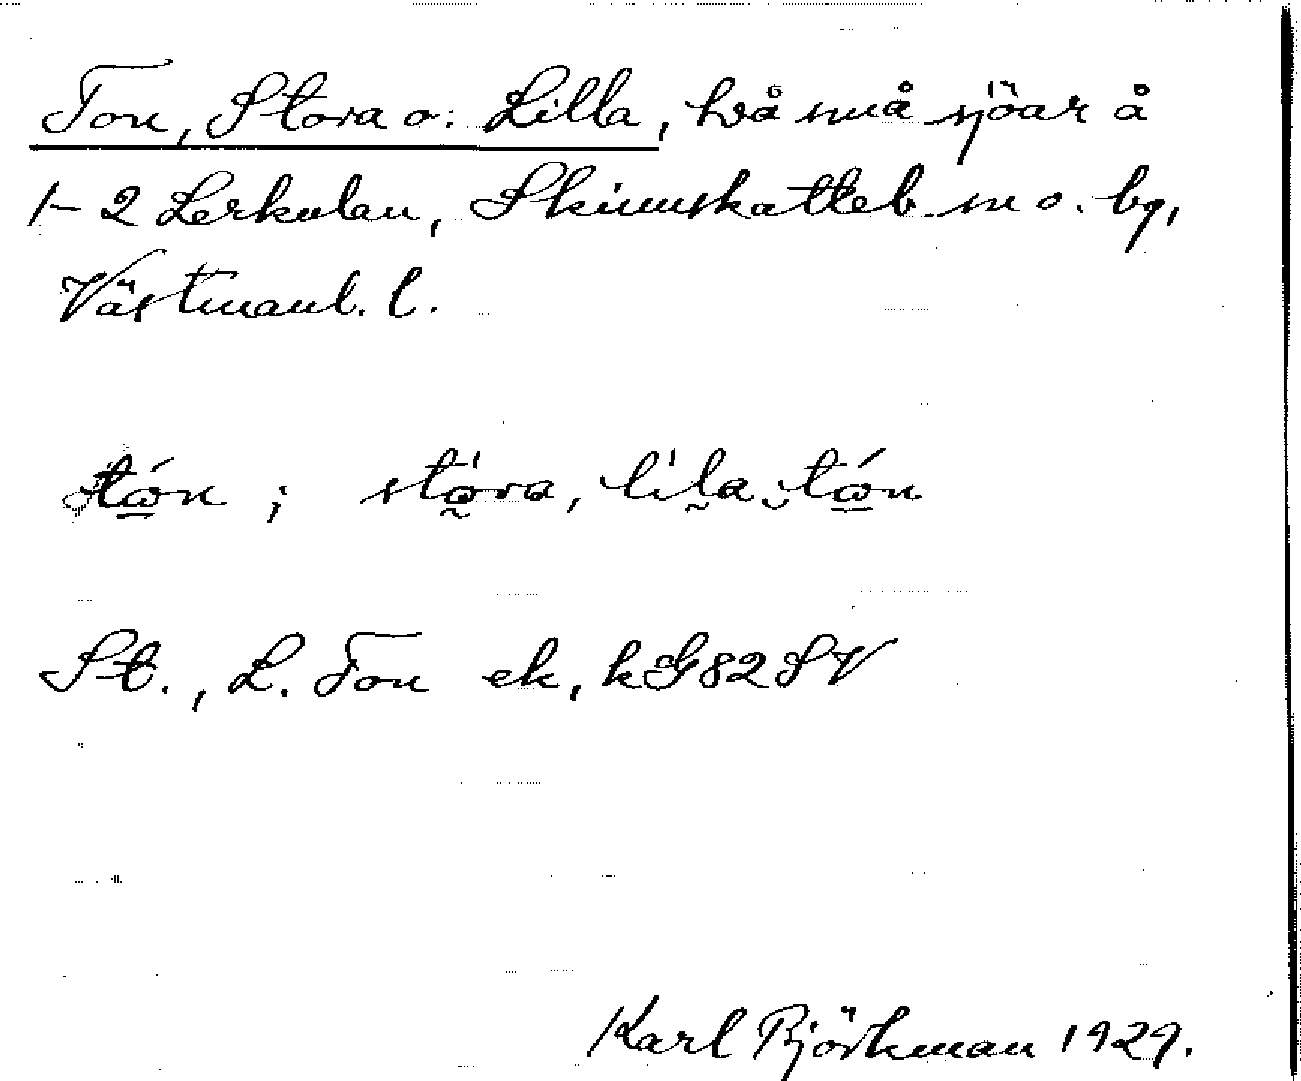 Ton, Stora o. Lilla, två små sjöar å
1-2 Lerkulan, Skinnskatteb. sn o. by,
Västmanl. l.
tón ; stora, lila tón
St., L. Ton ek, kG82SV
Karl Björkman 1929.